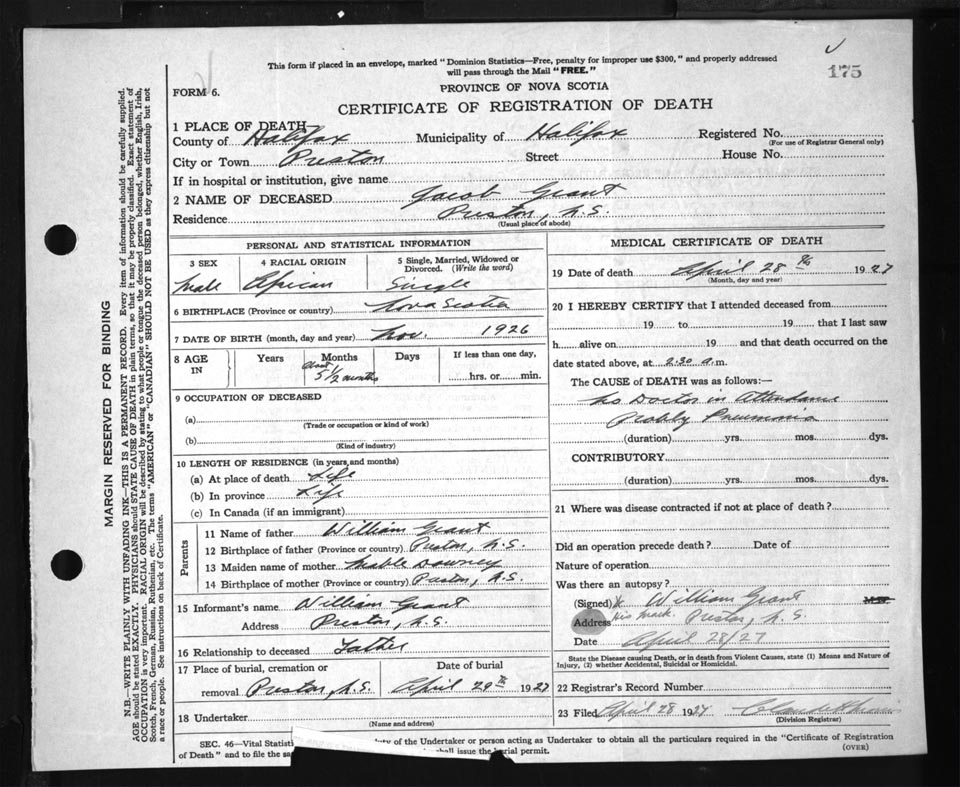 This form if placed in an envelope, marked "Dominion Statistics—Free, penalty for improper use $300," and properly addressed
will pass through the Mail "FREE."
175
FORM 6.
PROVINCE OF NOVA SCOTIA
CERTIFICATE OF REGISTRATION OF DEATH
1 PLACE OF DEATH
County of Halifax Municipality of Halifax Registered No.
(For use of Registrar General only)
City or Town Preston Street House No.
If in hospital or institution, give name
2 NAME OF DECEASED Jacob Grant
Residence Preston, N.S.
(Usual place of abode)
PERSONAL AND STATISTICAL INFORMATION
3 SEX 4 RACIAL ORIGIN 5 Single, Married, Widowed or
Divorced. (Write the word)
Male African Single
6 BIRTHPLACE (Province or country) Nova Scotia
7 DATE OF BIRTH (month, day and year) Nov. 1926
8 AGE IN Years Months Days If less than one day,
about 5 1/2 months hrs. or min.
9 OCCUPATION OF DECEASED
(a)
(Trade or occupation or kind of work)
(b)
(Kind of industry)
10 LENGTH OF RESIDENCE (in years and months)
(a) At place of death Life
(b) In province Life
(c) In Canada (if an immigrant)
Parents
11 Name of father William Grant
12 Birthplace of father (Province or country) Preston, N.S.
13 Maiden name of mother Mable Downey
14 Birthplace of mother (Province or country) Preston, N.S.
15 Informant's name William Grant
Address Preston, N.S.
16 Relationship to deceased Father
17 Place of burial, cremation or Date of burial
removal Preston, N.S. April 29th 1927
18 Undertaker
(Name and address)
MEDICAL CERTIFICATE OF DEATH
19 Date of death April 28th 1927
(Month, day and year)
20 I HEREBY CERTIFY that I attended deceased from
19 to 19 that I last saw
h alive on 19 and that death occurred on the
date stated above, at 2:30 a.m.
The CAUSE of DEATH was as follows:—
No Doctor in Attendance
Probly Pneumonia
(duration) yrs. mos. dys.
CONTRIBUTORY
(duration) yrs. mos. dys.
21 Where was disease contracted if not at place of death?
Did an operation precede death? Date of
Nature of operation
Was there an autopsy?
(Signed) X William Grant
Address His Mark. Preston, N.S.
Date April 28/27
State the Disease causing Death, or in death from Violent Causes, state (1) Means and Nature of
Injury, (2) whether Accidental, Suicidal or Homicidal.
22 Registrar's Record Number
23 Filed April 28 1927
(Division Registrar)
SEC. 46—Vital Statisti ty of the Undertaker or person acting as Undertaker to obtain all the particulars required in the "Certificate of Registration
of Death" and to file the sa hall issue the burial permit. (OVER)
MARGIN RESERVED FOR BINDING
N.B.—WRITE PLAINLY WITH UNFADING INK—THIS IS A PERMANENT RECORD. Every item of information should be carefully supplied.
AGE should be stated EXACTLY. PHYSICIANS should STATE CAUSE OF DEATH in plain terms, so that it may be properly classified. Exact statement of
OCCUPATION is very important. RACIAL ORIGIN will be described by stating to what people or tongue the deceased person belonged, whether English, Irish,
Scotch, French, German, Russian, Ruthenian, etc. The terms "AMERICAN" or "CANADIAN" SHOULD NOT BE USED as they express citizenship but not
a race or people. See instructions on back of Certificate.